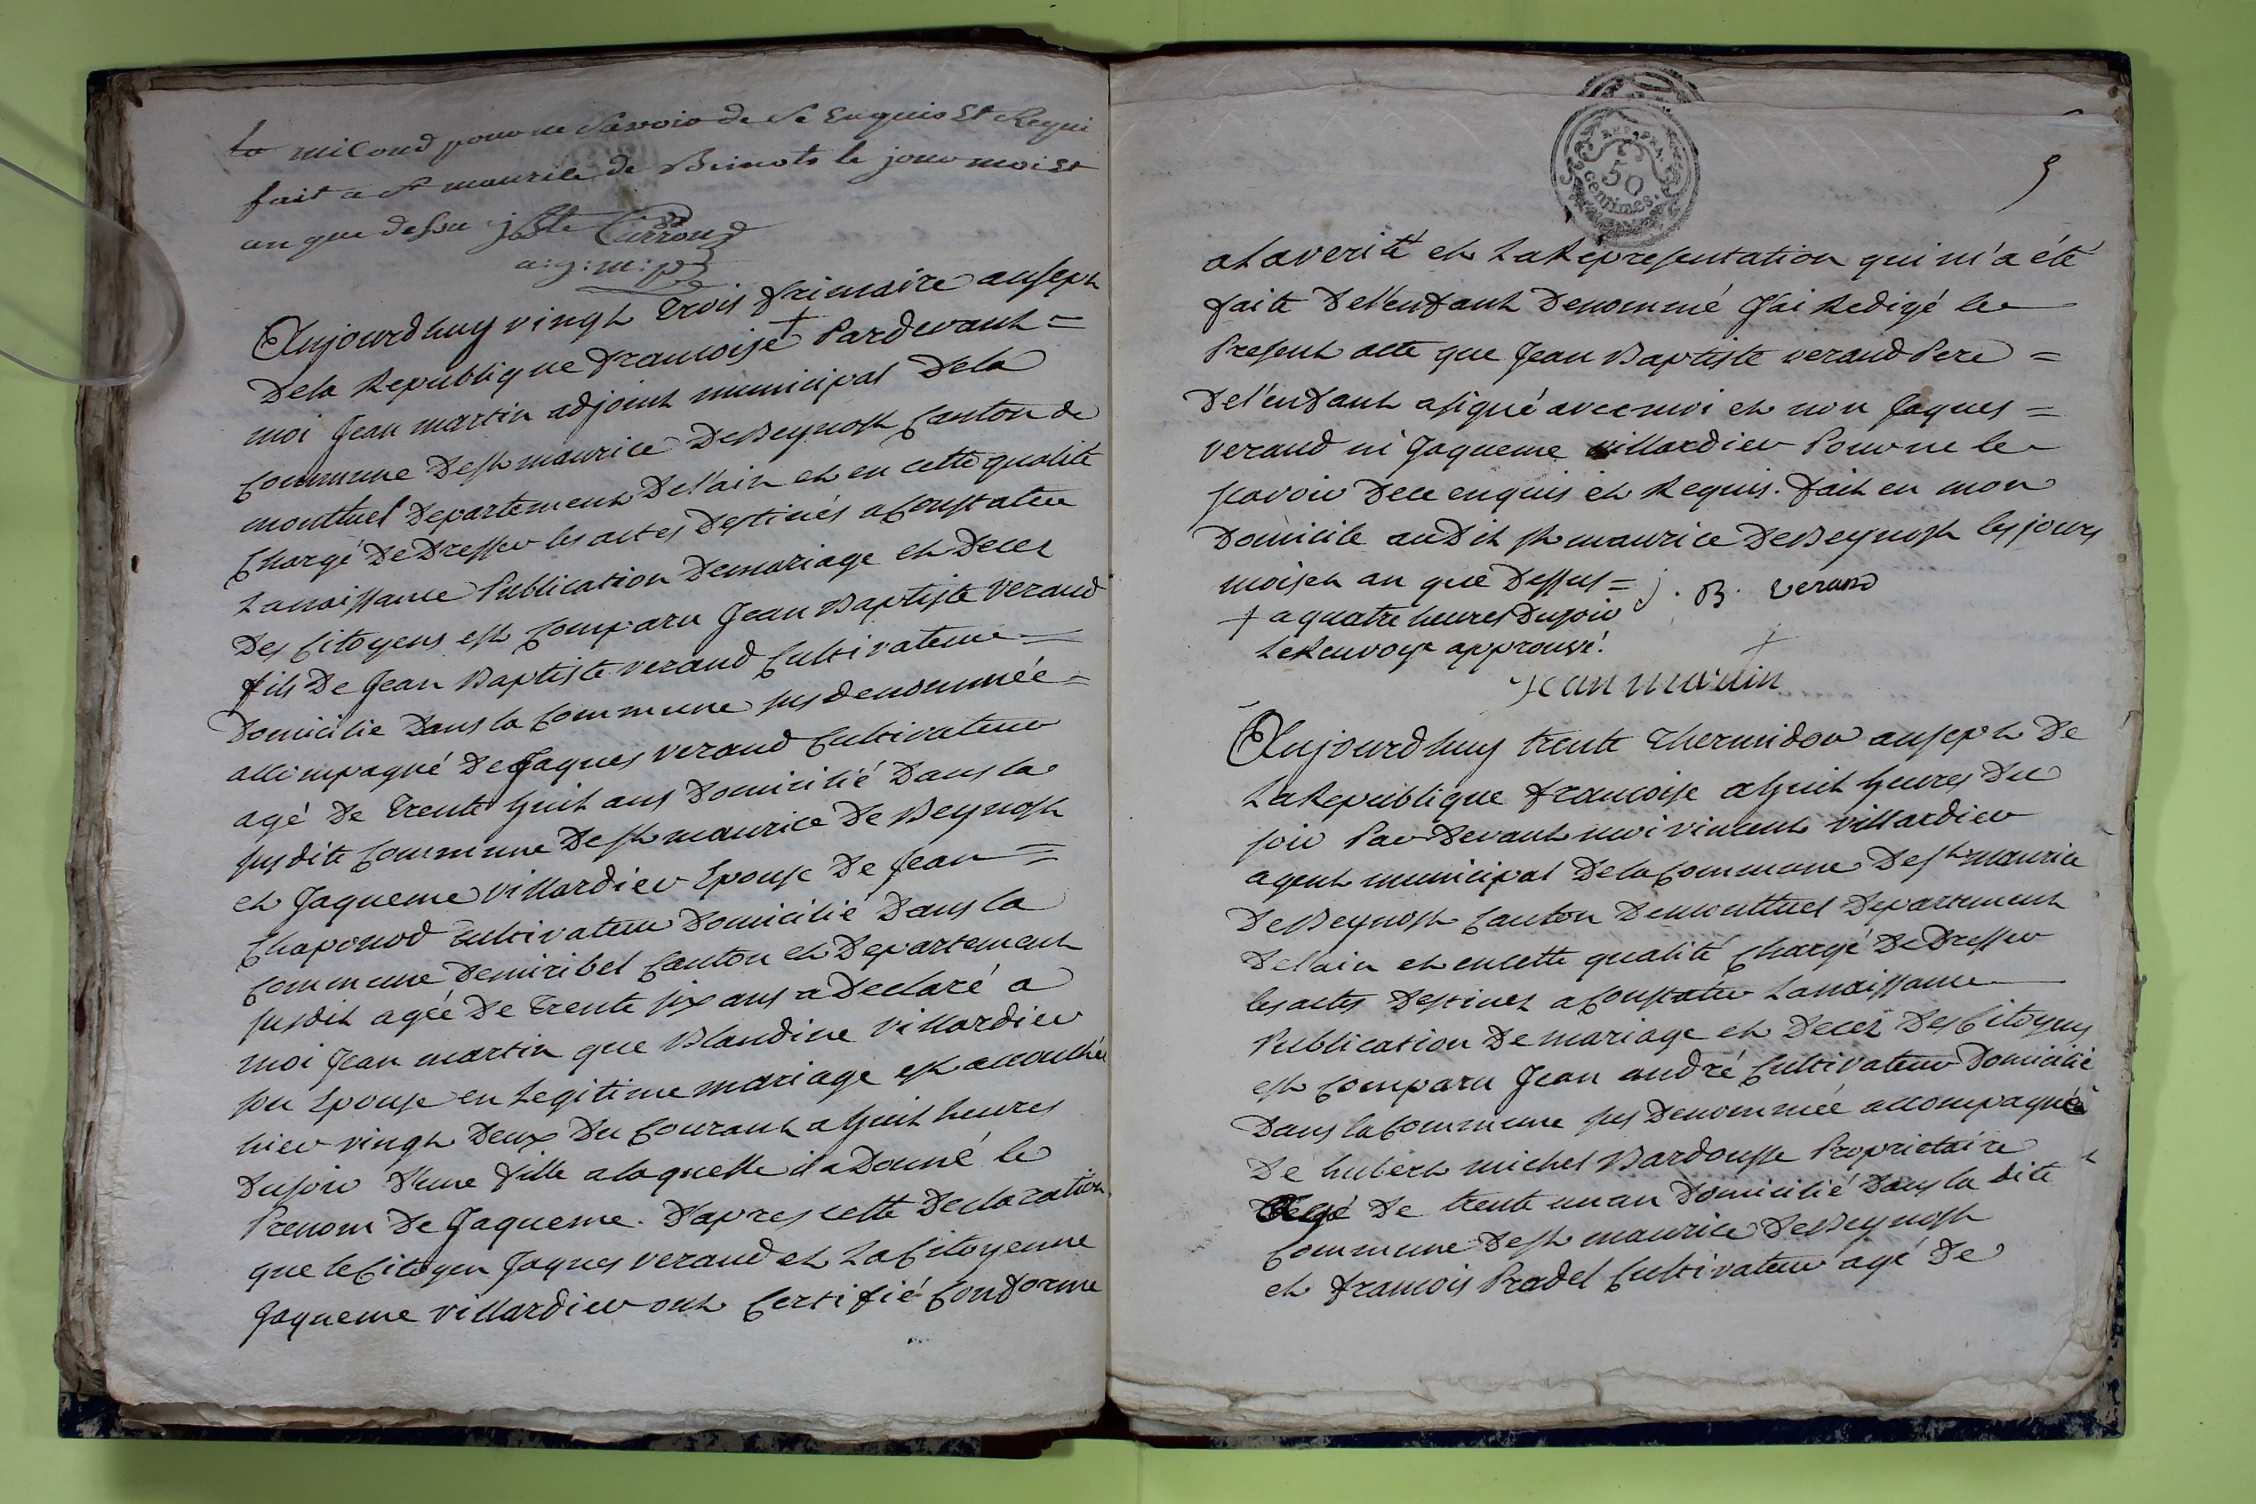 la mil Coud pour ne Savoir de Se Enquis Et Requi
fait a St maurile de Beinots le jour moi Et
an que dessu jbte Carrond
a: g: m: p
Aujourdhuy vingt trois frimaire an sept
De la Republique francoise + Pardevant =
moi Jean martin adjoint municipal De la
Commune De St maurice De Beynost Canton de
montluel Departement De l'ain et en cette qualité
Chargé De Dresser les actes Destinés a Constater
La naissance Publication De mariage et Decez
Des Citoyens est Comparu Jean Baptiste verand
fils De Jean Baptiste verand Cultivateur
Domicilié Dans la Commune sus denommée =
accompagné De Jaques verand Cultivateur
agé De Trente huit ans Domicilié Dans la
susdite Commune De St maurice De Beynost
et Jaqueme villardier Epouse De Jean =
Chaponod Cultivateur Domicilié Dans la
Commune De miribel Canton et Departement
susdit agée De Trente six ans a Declaré a
moi Jean martin que Blandine villardier
son Epouse en Legitime mariage est accouchée
hier vingt Deux Du Courant a huit heures
Du soir D'une fille a laquelle il a Donné le
Prenom De Jaqueme. D'apres cette Declaration
que le Citoyen Jaques verand et La Citoyenne
Jaqueme villardier ont Certifié Conforme
REP. FRA.
50
centimes.
5
a La verité et La Representation qui m'a été
faite De l'enfant Denommé J'ai Redigé le
Present acte que Jean Baptiste verand Pere =
De l'enfant a signé avec moi et non Jaques =
verand ni Jaqueme villardier Pour ne le
scavoir De ce enquis et Requis. fait en mon
Domicile au Dit St maurice De Beynost les jours
mois et an que Dessus = J. B. verand
+ a quatre heures Du soir
Le Renvoye approuvé.
Jean martin
Aujourdhuy trente Thermidor an sept De
La Republique francoise a huit heures Du
soir Par Devant moi vincent villardier
agent municipal De la Commune De St maurice
De Beynost Canton De montluel Departement
De l'ain et en cette qualité Chargé De Dresser
les actes Destinez a Constater La naissance
Publication De mariage et Decez Des Citoyens
est Comparu Jean andré Cultivateur Domicilié
Dans la Commune sus Denommée accompagné
De hubert michel Bardousse Proprietaire
agé De trente un an Domicilié Dans la dite
Commune De St maurice De Beynost
et francois Pradel Cultivateur agé De